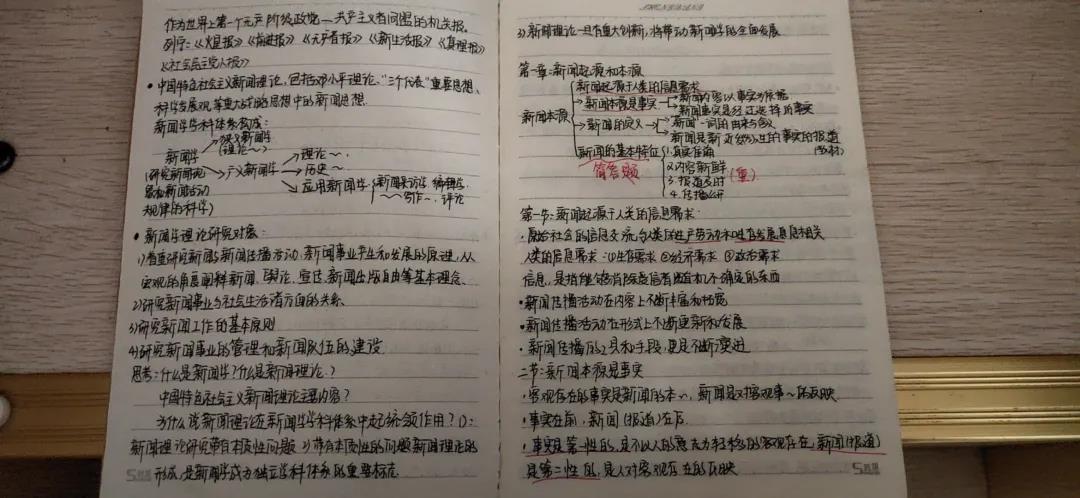 作为世界上第一个无产阶级政党—共产主义者同盟的机关报。
列宁:《火星报》《前进报》《无产者报》《新生活报》《真理报》
《社会民主党人报》
• 中国特色社会主义新闻理论,包括邓小平理论、"三个代表"重要思想、
科学发展观等重大战略思想中的新闻思想.
新闻学学科体系构成:
新闻学
(研究新闻现
象和新闻活动
规律的科学)
狭义新闻学
(理论~~)
广义新闻学
理论~.
历史~.
应用新闻学
新闻采访学、编辑学
~~写作~、评论
• 新闻学理论研究对象:
1)着重研究新闻与新闻传播活动、新闻事业产生和发展的原理,从
宏观的角度阐释新闻、舆论、宣传、新闻出版自由等基本理念.
2)研究新闻事业与社会生活诸方面的关系
3)研究新闻工作的基本原则
4)研究新闻事业的管理和新闻队伍的建设
思考:什么是新闻学?什么是新闻理论?
中国特色社会主义新闻理论主要内容?
为什么说新闻理论在新闻学学科体系中起统领作用?
新闻理论研究带有本质性问题 2)带有本质性的问题新闻理论的
形成,是新闻学成为独立学科体系的重要标志
3)新闻理论一旦有重大创新,将带动新闻学的全面发展
第一章:新闻起源和本源
新闻本源
新闻起源于人类的信息需求
新闻本源是事实
新闻内容以事实为依据
新闻事实是经过选择的事实
新闻的定义
新闻一词的由来与含义
新闻是新近发生的事实的报道
(教材)
新闻的基本特征
简答题
1.真实准确
2.内容新鲜
3.报道及时
4.传播公开
(重)
第一节:新闻起源于人类的信息需求
•原始社会的信息交流,与人类的生产劳动和生存发展息息相关
人类的信息需求:①生存需求 ②经济需求 ③政治需求
信息,是指能够消除受信者随机不确定的东西
•新闻传播活动在内容上不断丰富和拓宽
•新闻传播活动在形式上不断更新和发展
•新闻传播的工具和手段,更是不断演进
二节:新闻本源是事实
•客观存在的事实是新闻的本~,新闻是对客观事~的反映.
•事实在前,新闻(报道)在后.
•事实是第一性的,是不以人的意志为转移的客观存在,新闻(报道)
是第二性的,是人对客观存在的反映